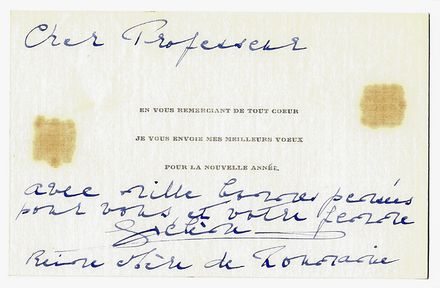 Cher Professeur
EN VOUS REMERCIANT DE TOUT COEUR
JE VOUS ENVOIE MES MEILLEURS VOEUX
POUR LA NOUVELLE ANNÉE,
avec mille bonnes pensées
pour vous et votre femme
Hélène
Reine Mère de Roumanie